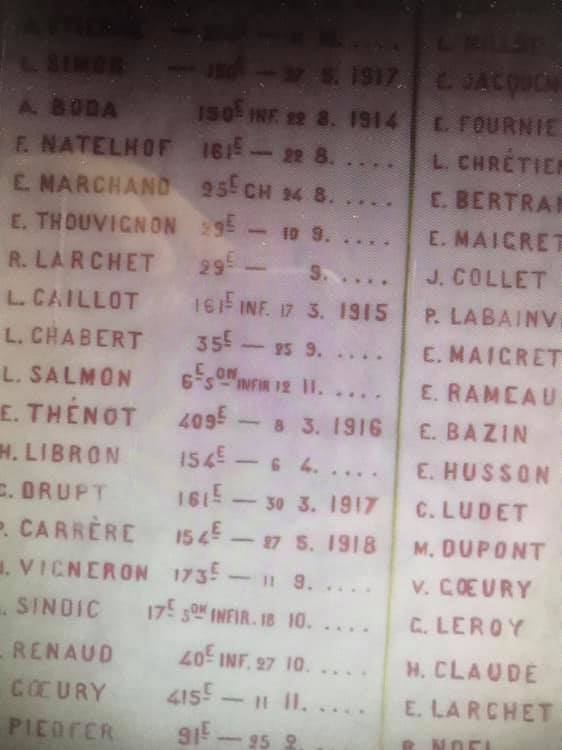 L. SIMON — 150E — 27 5. 1917
A. BODA 150E INF. 22 8. 1914
F. NATELHOF 161E — 22 8. ....
E. MARCHAND 25E CH 24 8. ....
E. THOUVIGNON 29E — 10 9. ....
R. LARCHET 29E — 9. ....
L. CAILLOT 161E INF. 17 3. 1915
L. CHABERT 35E — 25 9. ....
L. SALMON 6E SON INFIR 12 11. ....
E. THÉNOT 409E — 8 3. 1916
H. LIBRON 154E — 6 4. ....
DRUPT 161E — 30 3. 1917
P. CARRÈRE 154E — 27 5. 1918
VIGNERON 173E — 11 9. ....
SINDIC 17E SON INFIR. 18 10. ....
RENAUD 40E INF. 27 10. ....
CŒURY 415E — 11 11. ....
91E — 25 2. ....
E. JACQUEM
E. FOURNIE
L. CHRÉTIEN
E. BERTRAN
E. MAIGRET
J. COLLET
P. LABAINV
E. MAIGRET
E. RAMEAU
E. BAZIN
E. HUSSON
C. LUDET
M. DUPONT
V. CŒURY
C. LEROY
H. CLAUDE
E. LARCHET